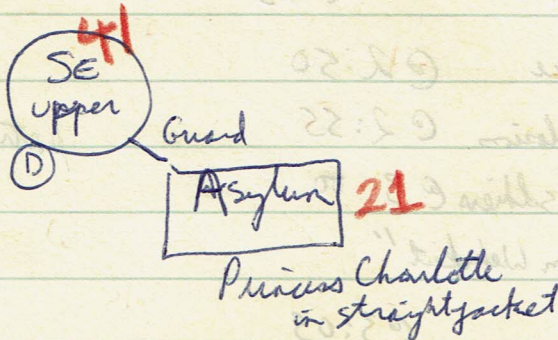 41
SE
upper
D
Guard
Asylum
21
Princess Charlotte
in straightjacket
@ 2:50
@ 2:55